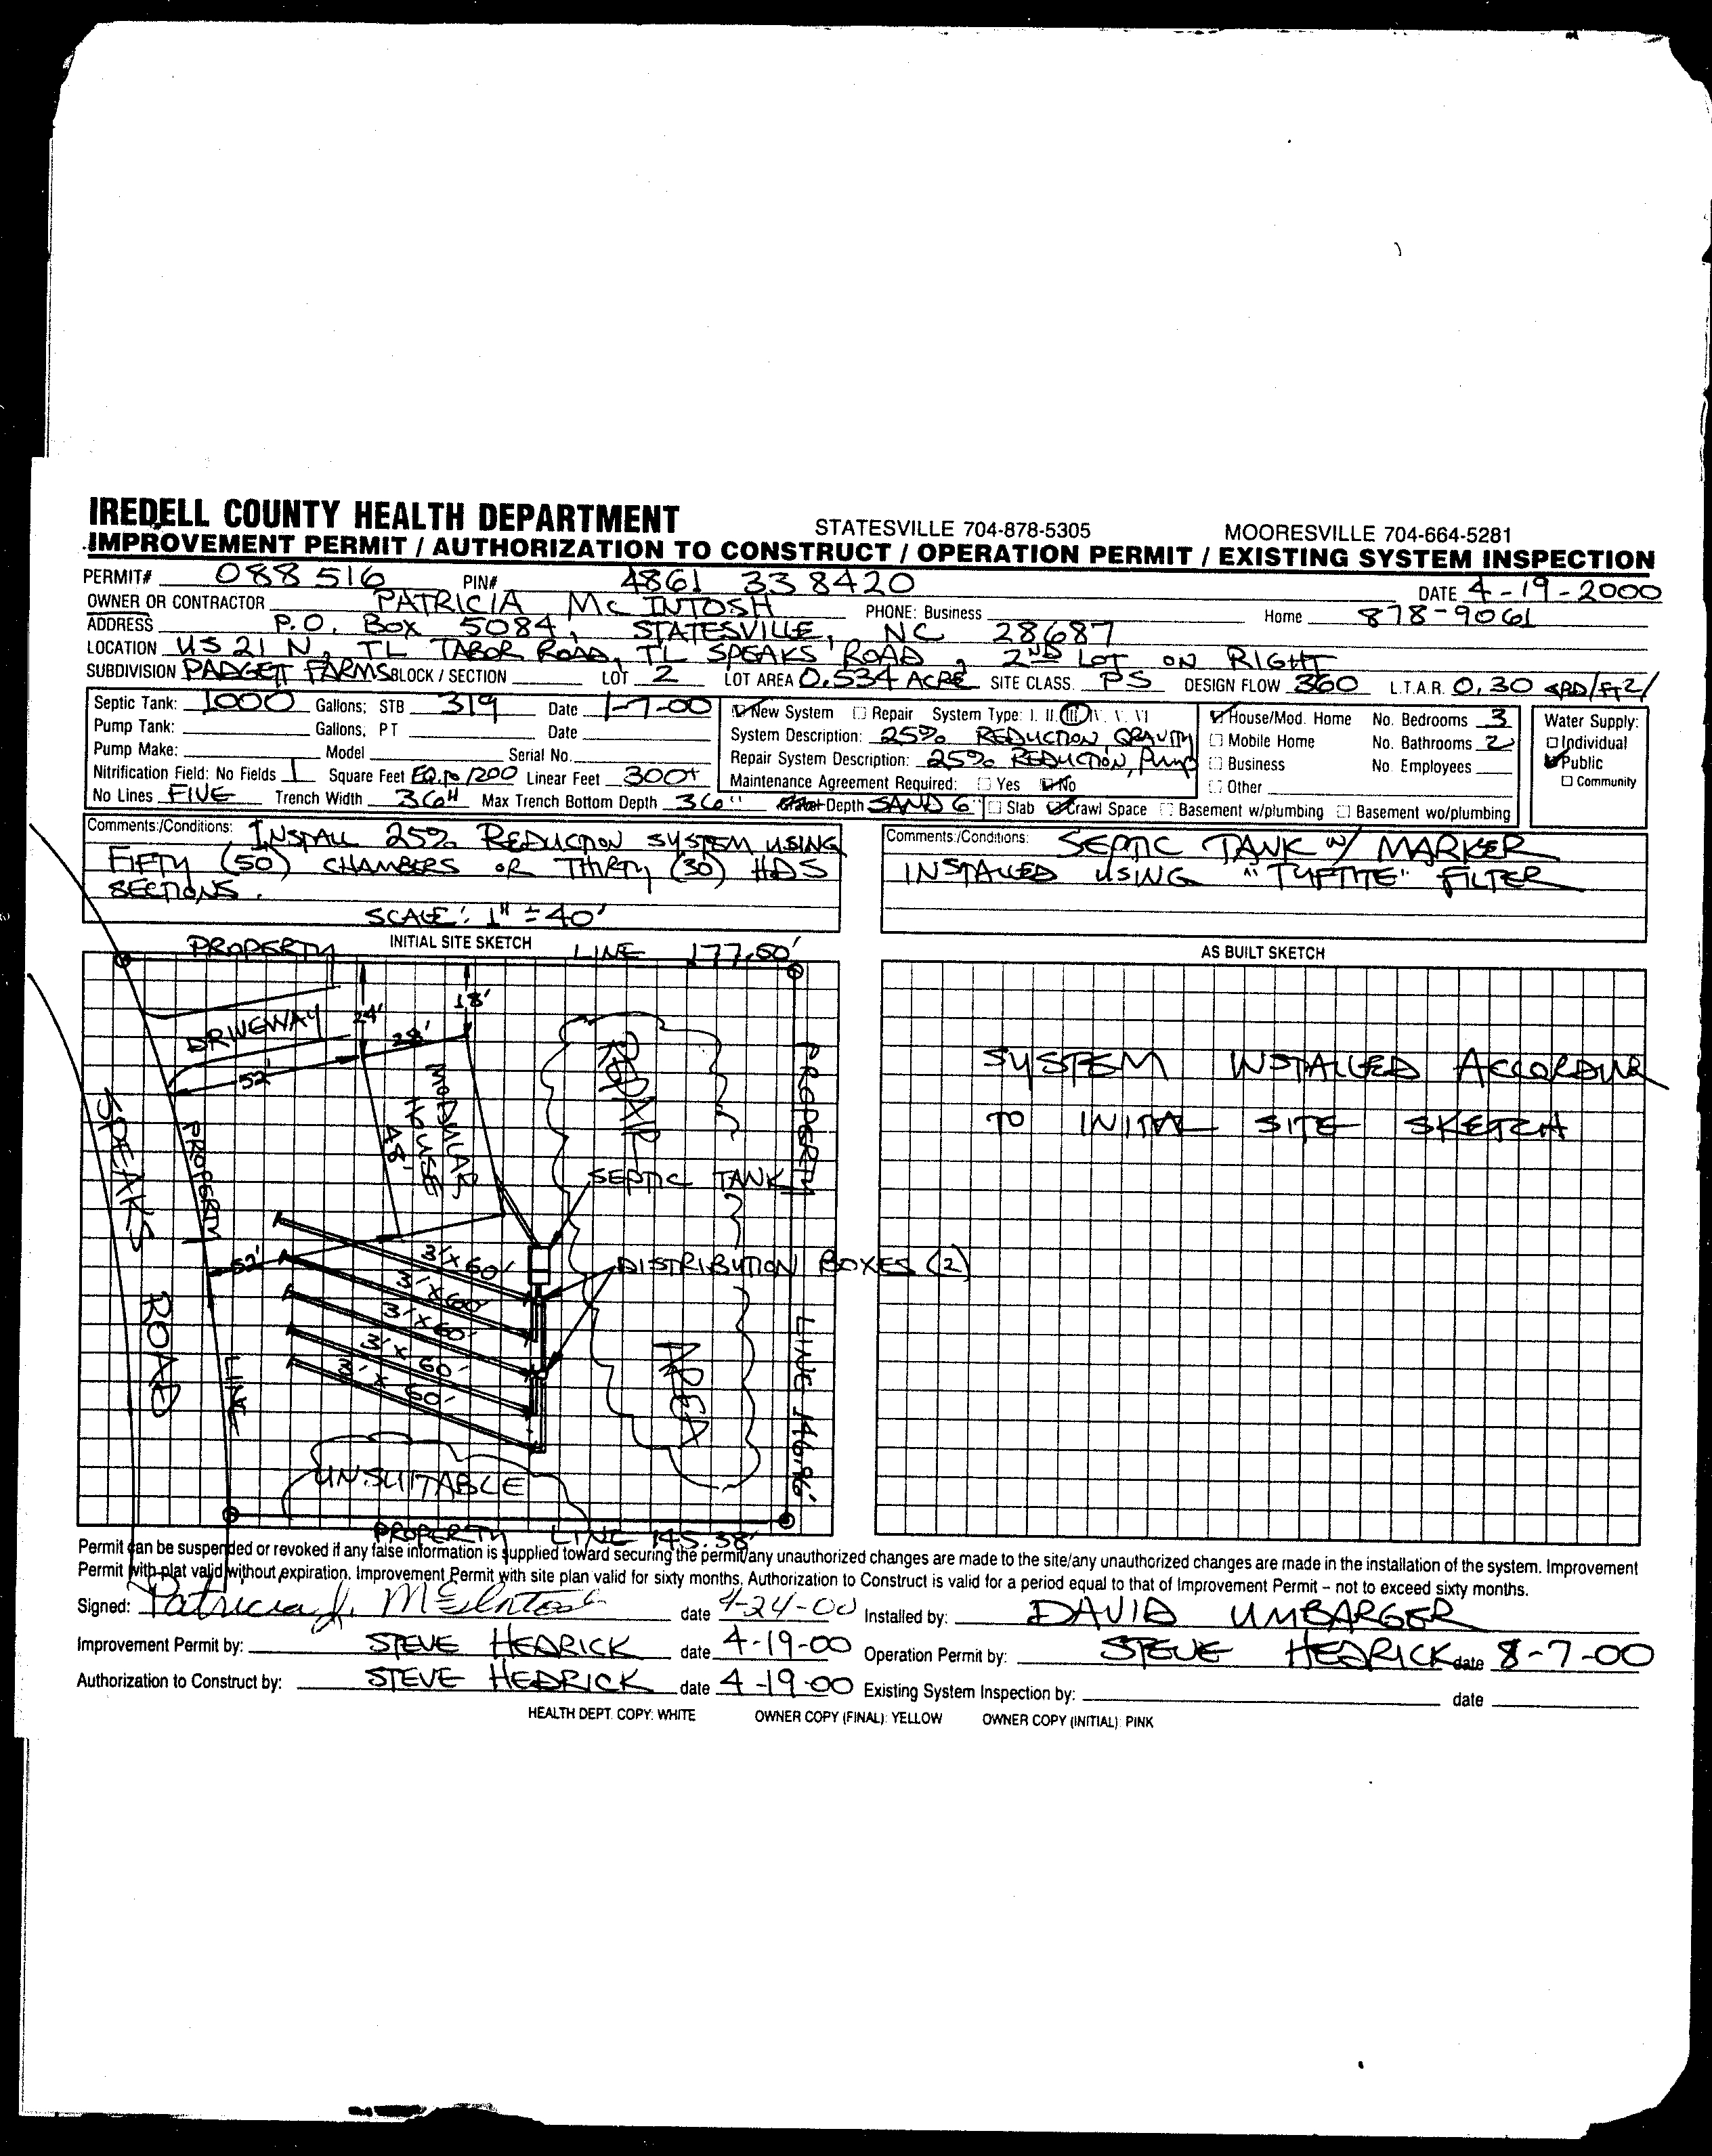 IREDELL COUNTY HEALTH DEPARTMENT STATESVILLE 704-878-5305 MOORESVILLE 704-664-5281
IMPROVEMENT PERMIT / AUTHORIZATION TO CONSTRUCT / OPERATION PERMIT / EXISTING SYSTEM INSPECTION
PERMIT# 088516 PIN# 4861 338420 DATE 4-19-2000
OWNER OR CONTRACTOR PATRICIA McINTOSH PHONE: Business Home 878-9061
ADDRESS P.O. BOX 5084, STATESVILLE, NC 28687
LOCATION US 21 N, TL TABOR ROAD, TL SPEAKS ROAD, 2ND LOT ON RIGHT
SUBDIVISION PADGETT FARMS BLOCK / SECTION LOT 2 LOT AREA 0.534 ACRE SITE CLASS. PS DESIGN FLOW 360 L.T.A.R. 0.30 GPD/FT2/
Septic Tank: 1000 Gallons; STB 319 Date 1-7-00
Pump Tank: Gallons, PT Date
Pump Make: Model Serial No.
Nitrification Field: No Fields 1 Square Feet EQ. TO 1200 Linear Feet 300+
No Lines FIVE Trench Width 36" Max Trench Bottom Depth 36" Depth SAND 6"
New System Repair System Type: I. II. III IV. V. VI
System Description: 25% REDUCTION, GRAVITY
Repair System Description: 25% REDUCTION, PUMP
Maintenance Agreement Required: Yes No
Slab Crawl Space Basement w/plumbing Basement wo/plumbing
House/Mod. Home No. Bedrooms 3
Mobile Home No. Bathrooms 2
Business No. Employees
Other
Water Supply:
Individual
Public
Community
Comments:/Conditions: INSTALL 25% REDUCTION SYSTEM USING
FIFTY (50) CHAMBERS OR THIRTY (30) HDS
SECTIONS.
SCALE: 1" = 40'
Comments:/Conditions: SEPTIC TANK W/ MARKER
INSTALLED USING "TUFTITE" FILTER
INITIAL SITE SKETCH
PROPERTY LINE 177.50'
DRIVEWAY
24'
18'
28'
52'
MODULAR
HOUSE
48'
REPAIR
AREA
SEPTIC TANK
DISTRIBUTION BOXES (2)
3' x 60'
3' x 60'
3' x 60'
3' x 60'
3' x 60'
52'
SPEAKS ROAD
PROPERTY LINE
PROPERTY LINE 146.96'
UNSUITABLE
PROPERTY LINE 145.38'
AS BUILT SKETCH
SYSTEM INSTALLED ACCORDING
TO INITIAL SITE SKETCH
Permit can be suspended or revoked if any false information is supplied toward securing the permit/any unauthorized changes are made to the site/any unauthorized changes are made in the installation of the system. Improvement
Permit with plat valid without expiration. Improvement Permit with site plan valid for sixty months. Authorization to Construct is valid for a period equal to that of Improvement Permit – not to exceed sixty months.
Signed: Patricia J. McIntosh date 4-24-00 Installed by: DAVID UMBARGER
Improvement Permit by: STEVE HEDRICK date 4-19-00 Operation Permit by: STEVE HEDRICK date 8-7-00
Authorization to Construct by: STEVE HEDRICK date 4-19-00 Existing System Inspection by: date
HEALTH DEPT. COPY: WHITE OWNER COPY (FINAL): YELLOW OWNER COPY (INITIAL): PINK